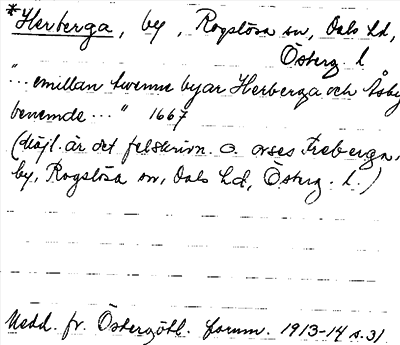 *Herberga, by, Rogslösa sn, Dals hd,
Österg. l
"... emillan twenne byar Herberga och Åsby
benemde..." 1667
(möjl. är det felskrivn. o. avses Freberga,
by, Rogslösa sn, Dals hd, Österg. l.)
Medd. fr. Östergötl. fornm. 1913-14 s.31